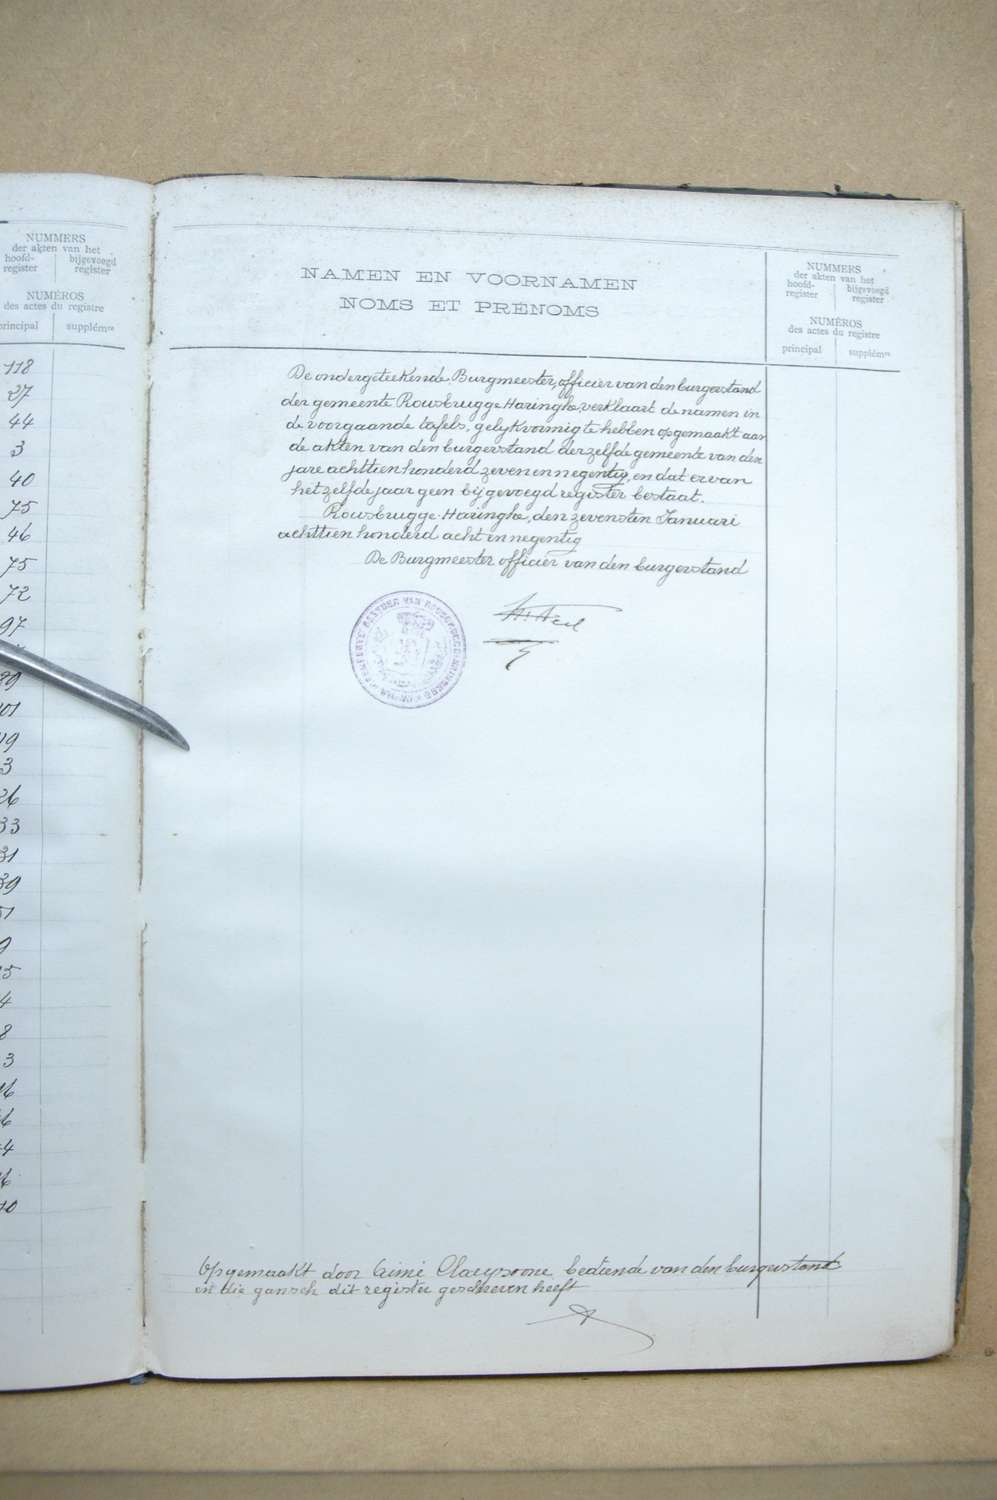 NUMMERS
der akten van het
hoofd-
register
bijgevoegd
register
NUMÉROS
des actes du registre
principal
supplém
118
27
44
3
40
75
46
75
72
97
NAMEN EN VOORNAMEN
NOMS ET PRÉNOMS
NUMMERS
der akten van het
hoofd-
register
bijgevoegd
register
NUMÉROS
des actes du registre
principal
supplém
De ondergeteekende Burgmeester, officier van den burgerstand
der gemeente Rousbrugge-Haringhe, verklaart de namen in
de voorgaande tafels, gelykvormig te hebben opgemaakt aan
de akten van den burgerstand derzelfde gemeente van den
jare achttien honderd zeven en negentig, en dat er van
hetzelfde jaar geen bijgevoegd register bestaat.
Rousbrugge-Haringhe, den zevensten Januari
achttien honderd acht in negentig
De Burgmeester officier van den burgerstand
Opgemaakt door Aimé Claeysoone bediende van den burgerstand
en die gansch dit register geschreven heeft